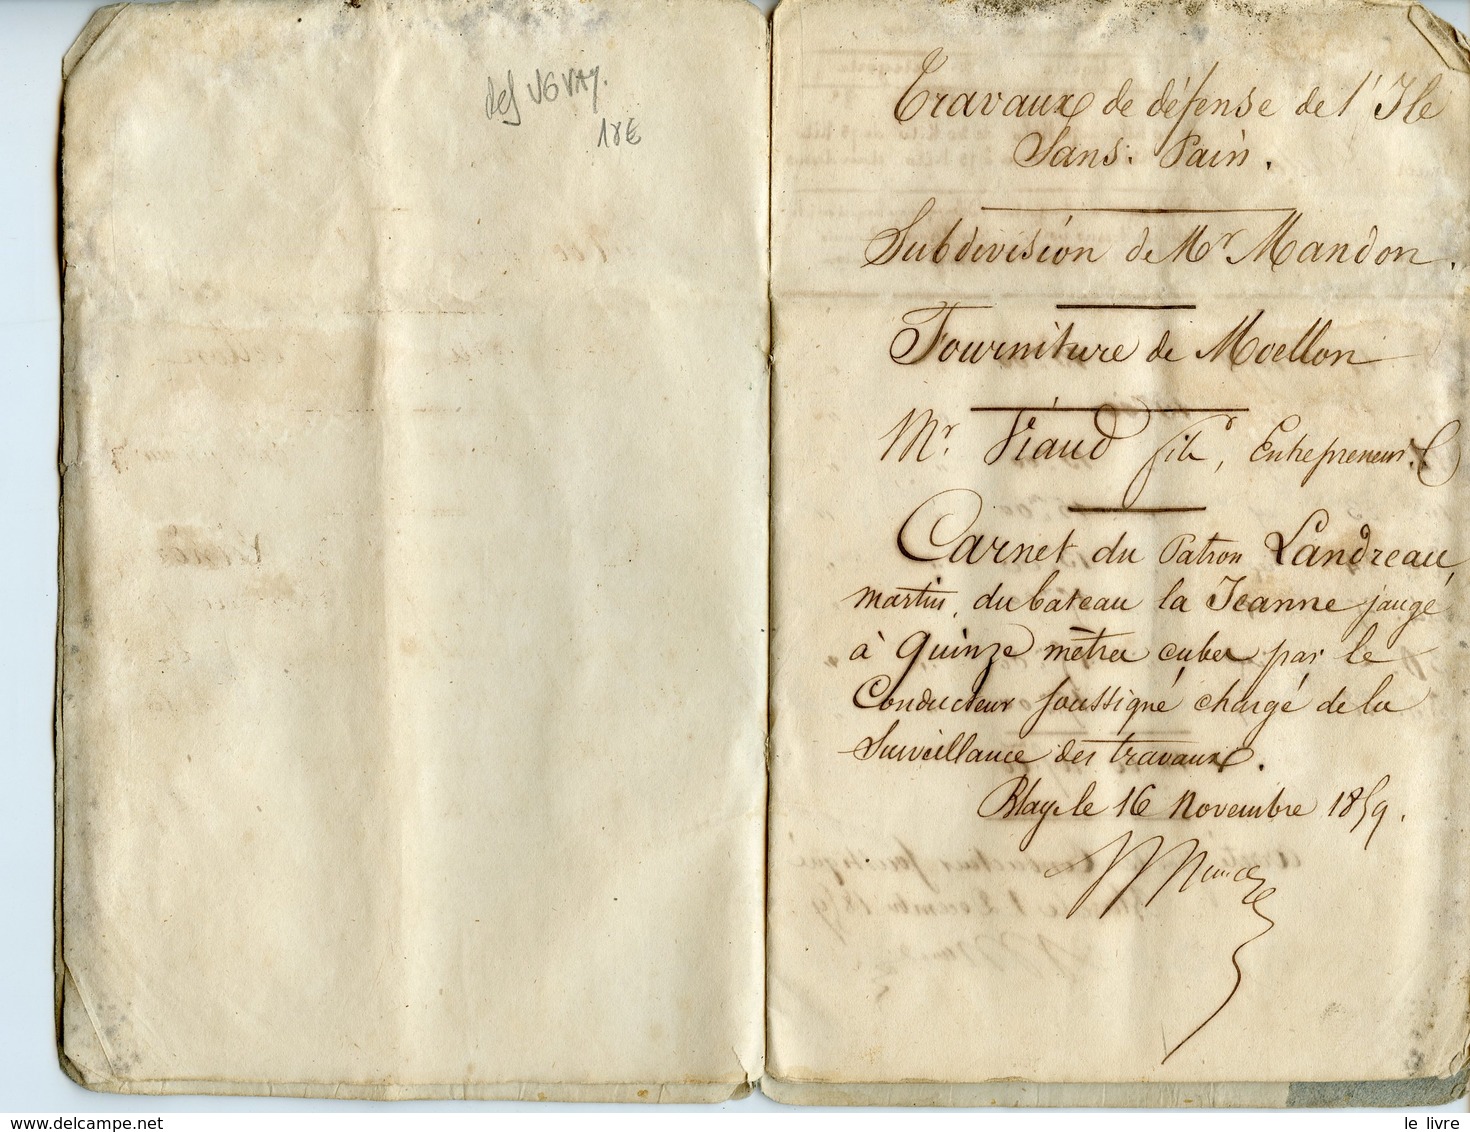 18€
Travaux de défense de l'Ile
Sans. Pain.
Subdivision de Mr Mandon.
Fourniture de Moellon
Mr. Viaud fils, Entrepreneur.
Carnet du Patron Landreau,
martin, du bateau la Jeanne jaugé
à Quinze mètres cubes par le
Conducteur soussigné chargé de la
Surveillance des travaux.
Blaye le 16 Novembre 1859.
le livre